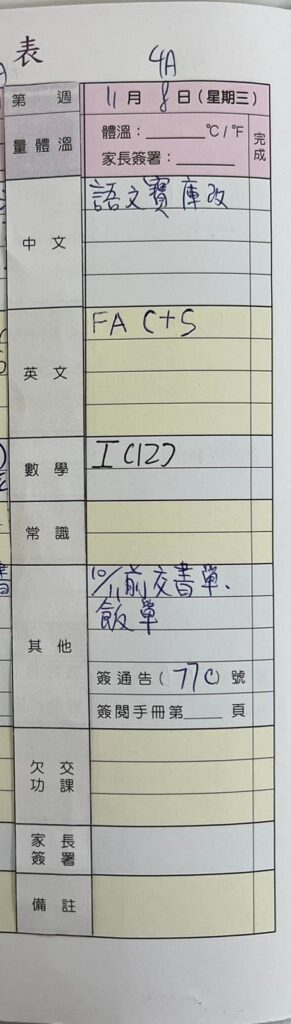 表
4A
第 週
11月8日(星期三)
量體溫
體溫:______℃/℉
家長簽署:______
完成
中文
語文寶庫改
英文
FA C+S
數學
I(12)
常識
其他
10/11前交書單、
飯單
簽通告(770號
簽閱手冊第____頁
欠交
功課
家長
簽署
備註